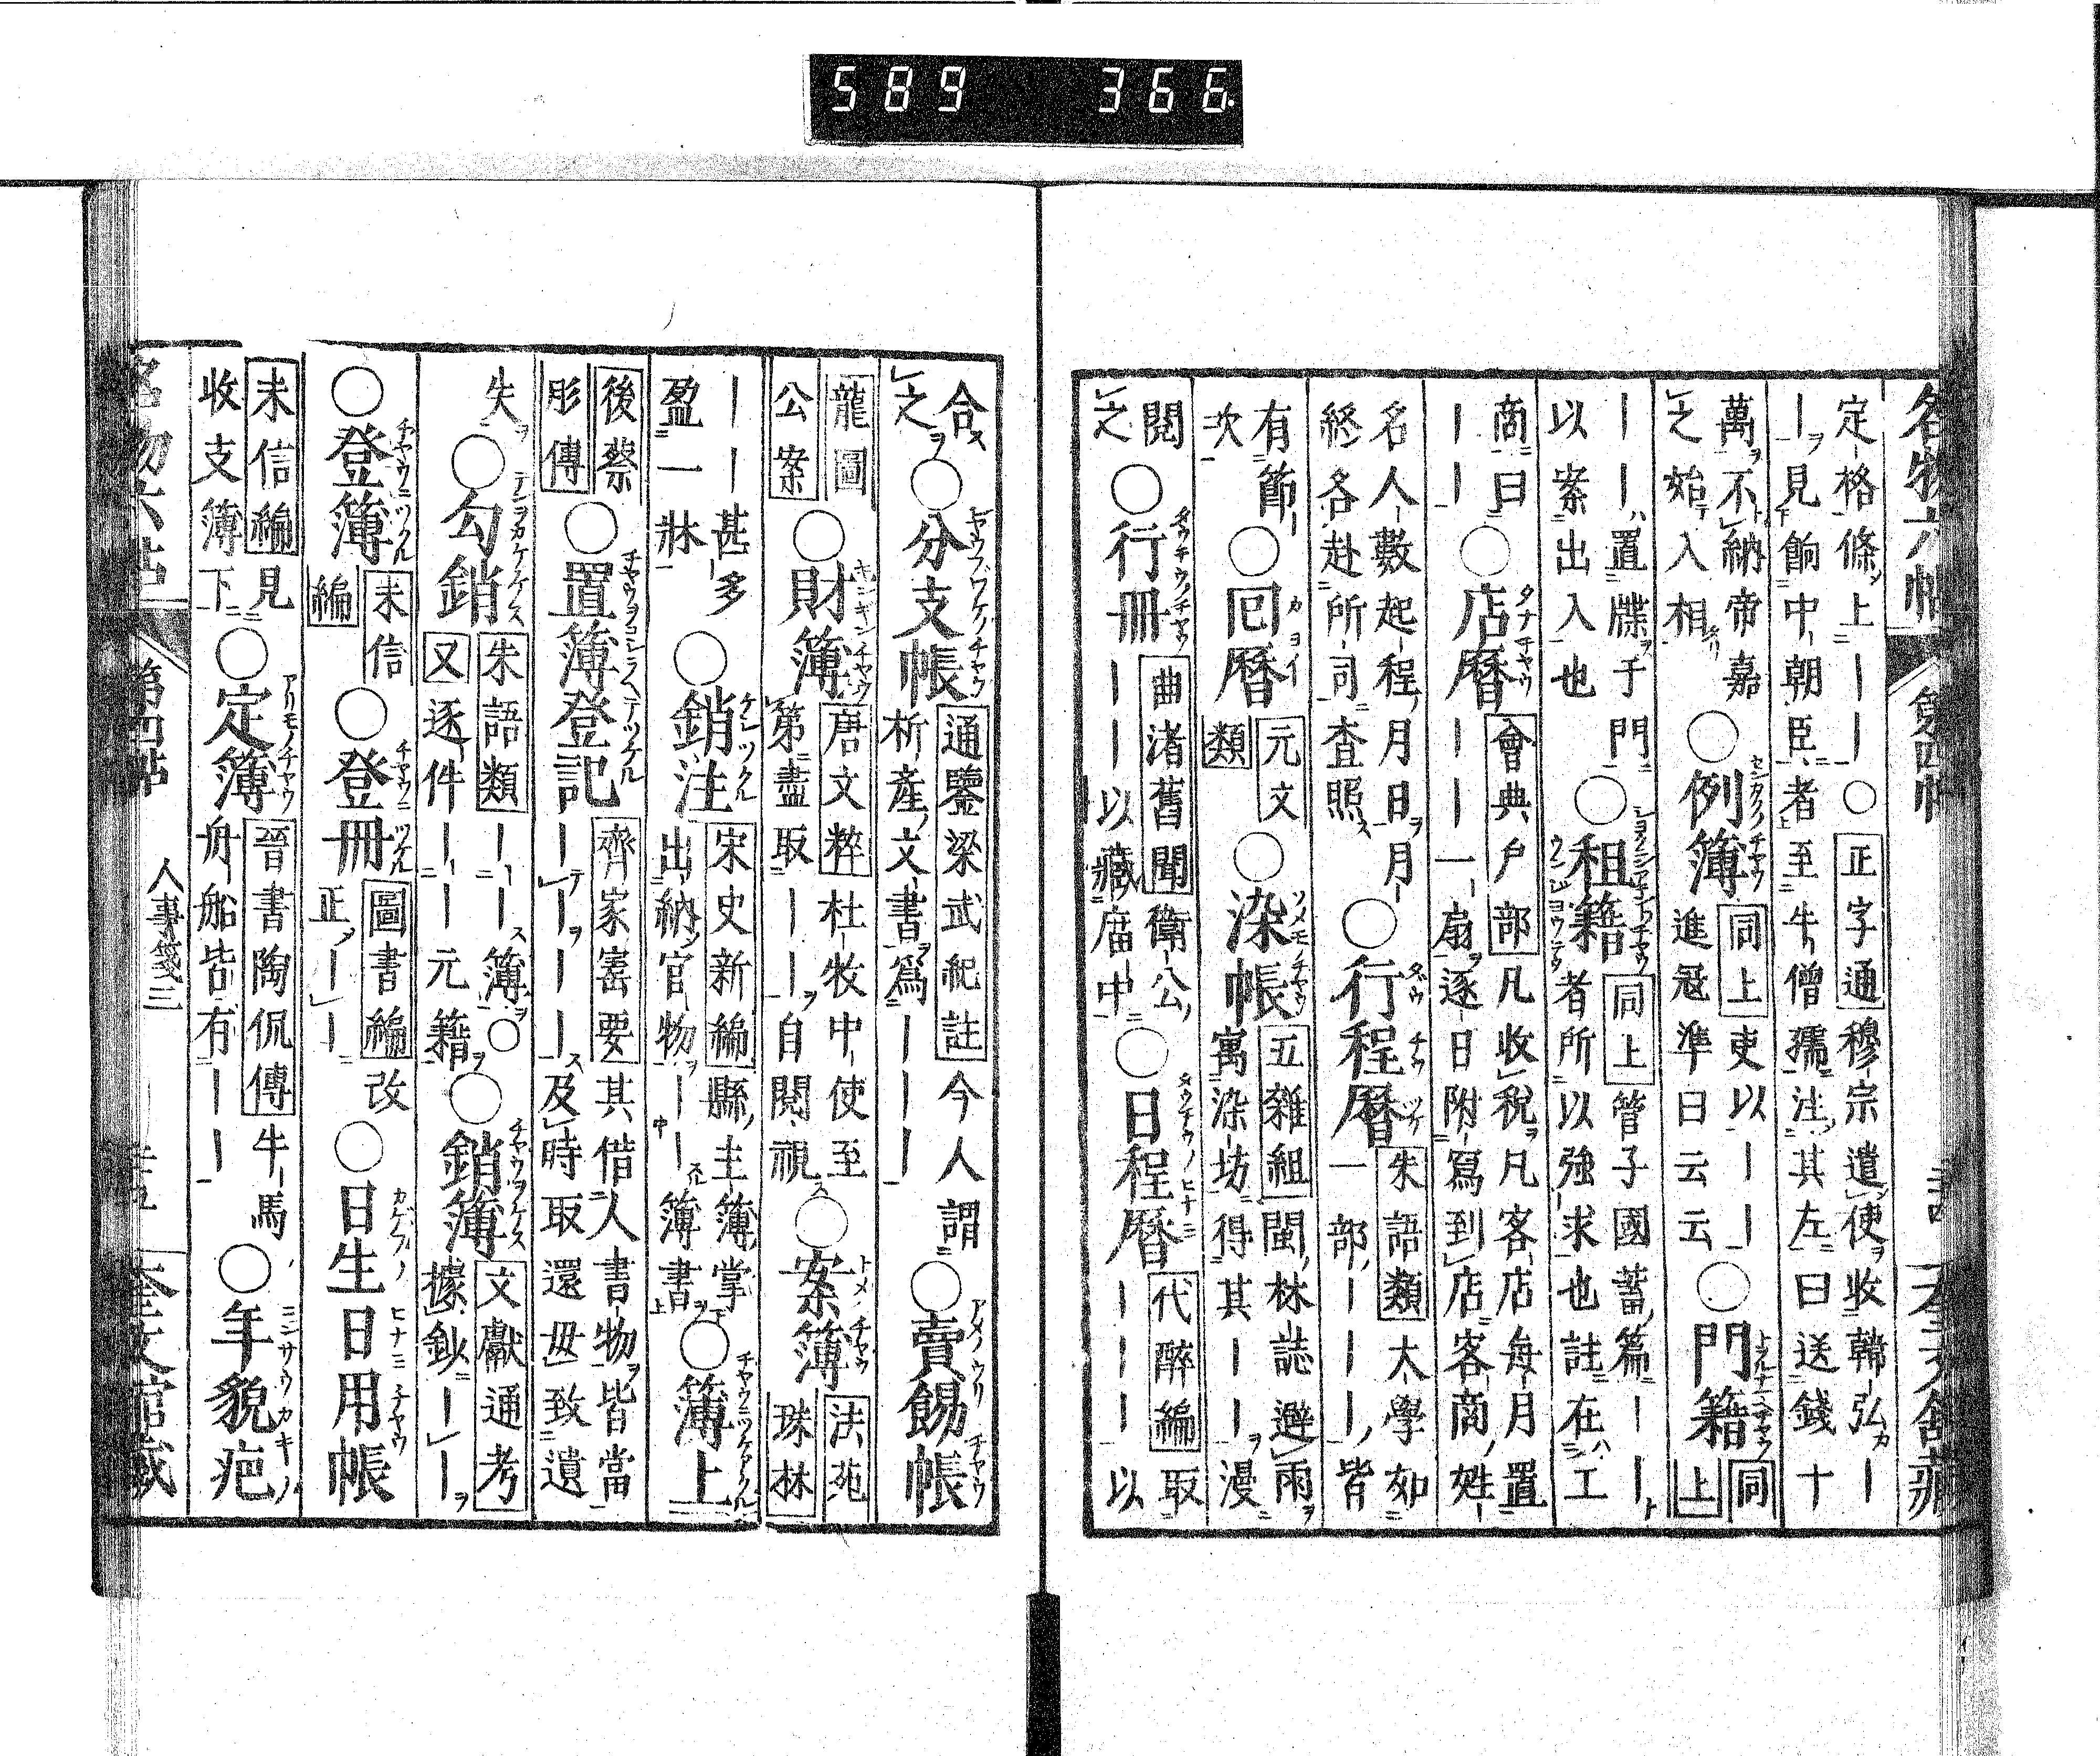 589 366
名物六帖 第四帖 奎文舘藏
定格條上——○正字通穆宗遣使收韓弘—
—見餉中朝臣者至牛僧孺注其左曰送錢十
萬不納帝嘉
之始入相
○例簿 同上吏以——
進冦準曰云云
○門籍 同上
——置牒于門
以案出入也
○租籍 同上管子國蓄篇——
者所以強求也註在工
商曰
——
○店曆 會典戶部凡收税凡客店每月置
———一扇逐日附寫到店客商姓
名人數起程月日月
終各赴所司査照
○行程曆 朱語類大學如
一部———皆
有節
次
○囘曆 元文
類
○染帳 五雜組閩林誌避雨
寓染坊得其——漫
閱
之
○行冊 曲洧舊聞衛公
——以藏庿中
○日程曆 代醉編取
———以
合
之
○分支帳 通鑒梁武紀註今人謂
析產文書爲———
○賣餳帳
龍圖
公案
○財簿 唐文粹杜牧中使至
第盡取——自閱視
○案簿 法苑
珠林
———甚多
盈一牀
○銷注 宋史新編縣主簿掌
出納官物——簿書
○簿上
後蔡
彤傳
○置簿登記 齊家寚要其借人書物皆當
————及時取還毋致遺
失
○勾銷 朱語類——簿○
又逐件——元籍
○銷簿 文獻通考
據鈔——
○登簿 未信
編
○登冊 圖書編改
正——
○日生日用帳
未信編見
收支簿下
○定簿 晉書陶侃傳牛馬
舟船皆有——
○年貌疤
第四帖 人事箋三